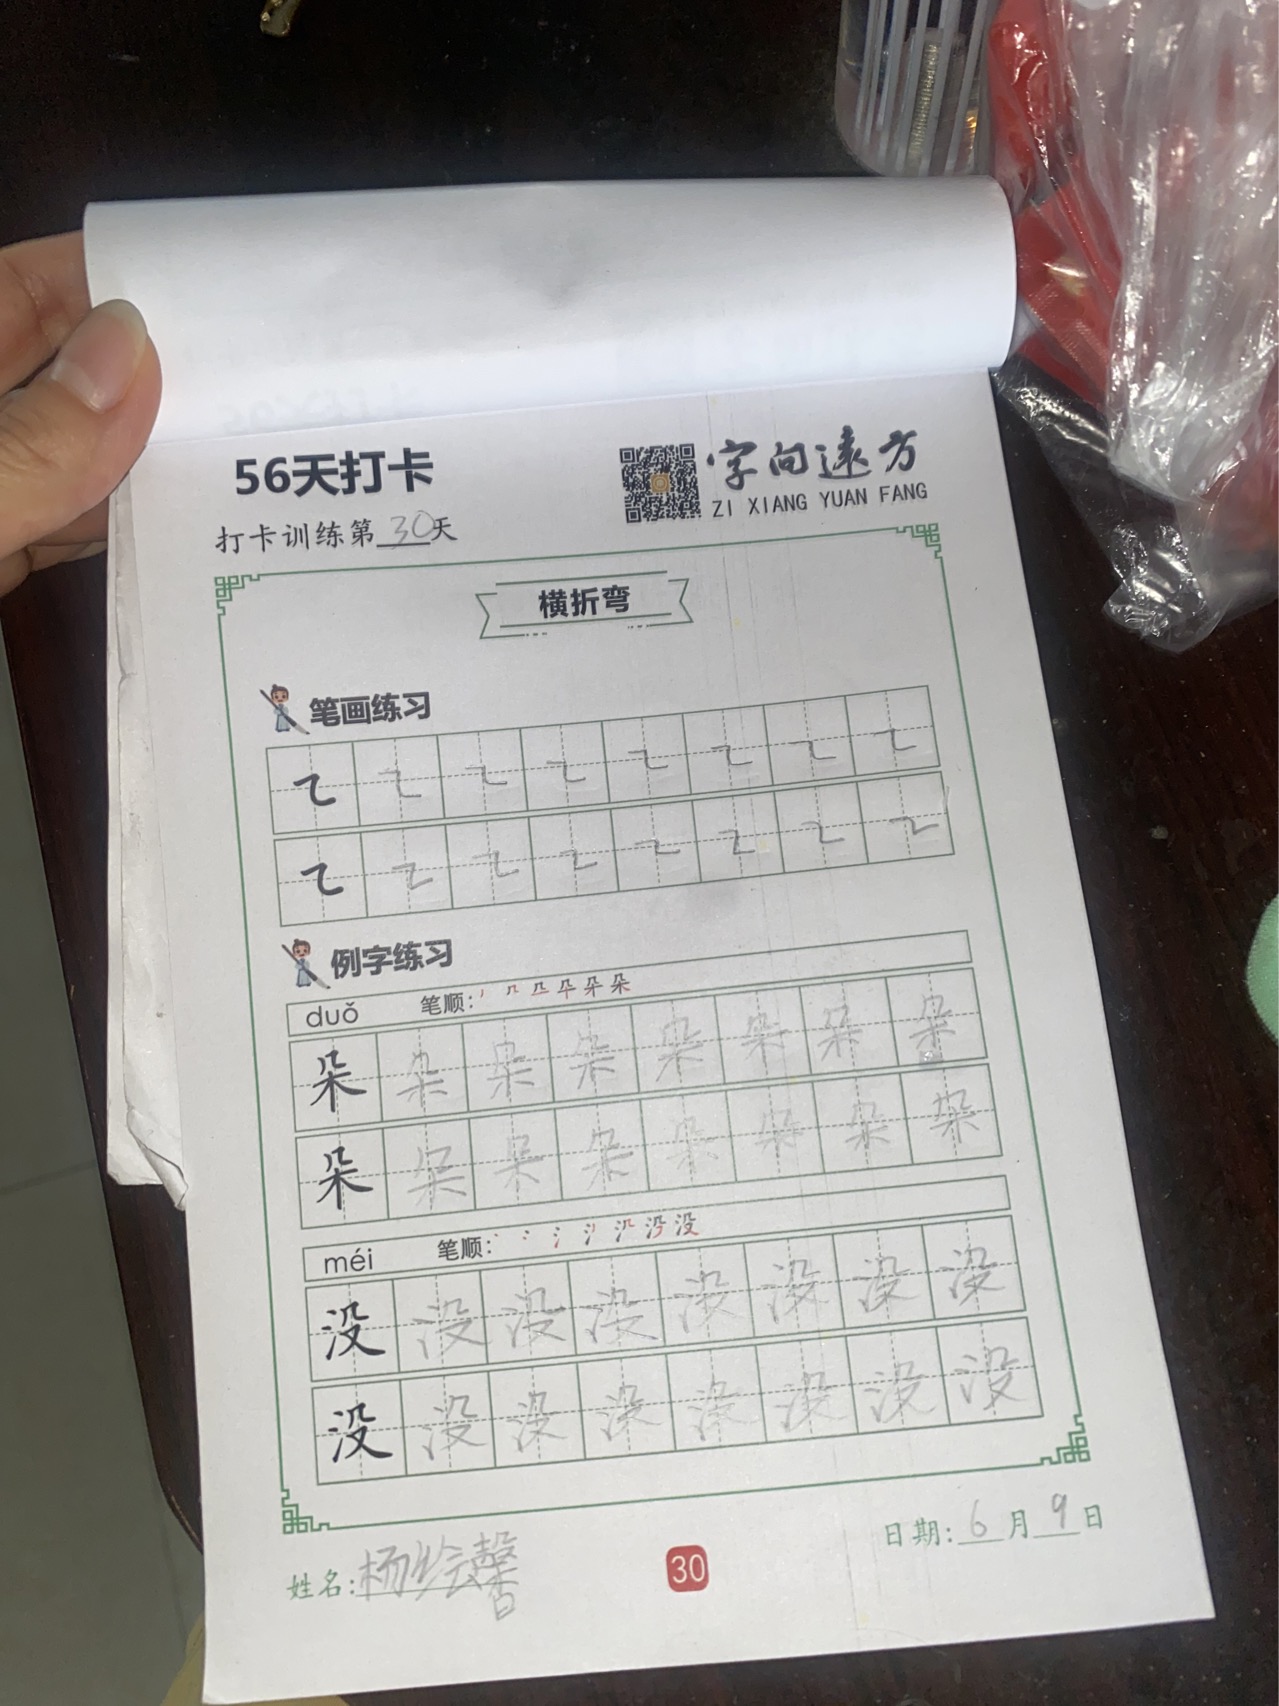 56天打卡
字向远方
ZI XIANG YUAN FANG
打卡训练第30天
横折弯
笔画练习
㇍ ㇍ ㇍ ㇍ ㇍ ㇍ ㇍ ㇍
㇍ ㇍ ㇍ ㇍ ㇍ ㇍ ㇍ ㇍
例字练习
duǒ 笔顺:
朵 朵 朵 朵 朵 朵 朵 朵
朵 朵 朵 朵 朵 朵 朵 朵
méi 笔顺:
没 没 没 没 没 没 没 没
没 没 没 没 没 没 没 没
日期:6月9日
姓名:杨绘馨
30